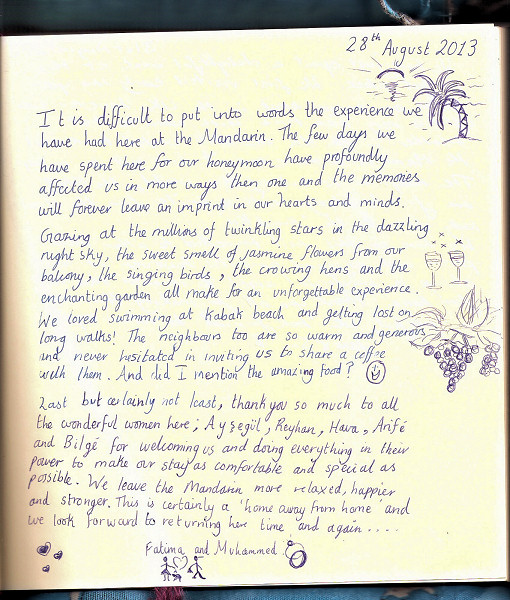 28th August 2013
It is difficult to put into words the experience we
have had here at the Mandarin. The few days we
have spent here for our honeymoon have profoundly
affected us in more ways then one and the memories
will forever leave an imprint in our hearts and minds.
Gazing at the millions of twinkling stars in the dazzling
night sky, the sweet smell of jasmine flowers from our
balcony, the singing birds, the crowing hens and the
enchanting garden all make for an unforgettable experience.
We loved swimming at Kabak beach and getting lost on
long walks! The neighbours too are so warm and generous
and never hesitated in inviting us to share a coffee
with them. And did I mention the amazing food?
Last but certainly not least, thank you so much to all
the wonderful women here; Ayşegül, Reyhan, Hava, Arifé
and Bilgé for welcoming us and doing everything in their
power to make our stay as comfortable and special as
possible. We leave the Mandarin more relaxed, happier
and stronger. This is certainly a 'home away from home' and
we look forward to returning here time and again.....
Fatima and Muhammed